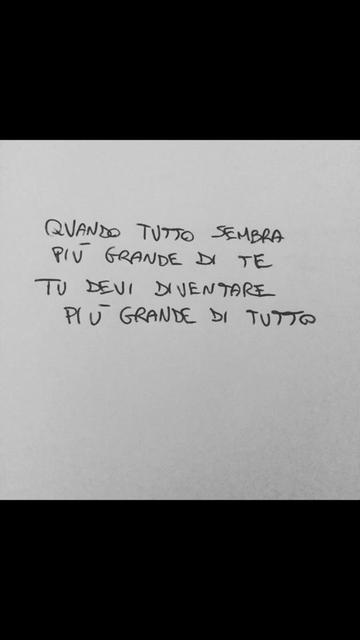 QUANDO TUTTO SEMBRA
PIÙ GRANDE DI TE
TU DEVI DIVENTARE
PIÙ GRANDE DI TUTTO